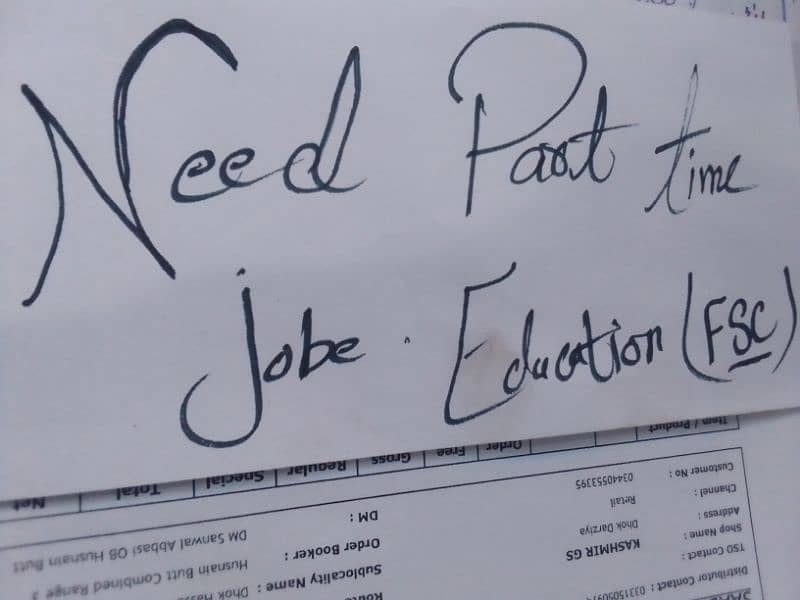 Need Part time
Jobe. Education (FSC)
Item / Product Order Free Gross Regular Special Total Net
Customer No : 03440553395
Channel : Retail
Address : Dhok Darziya
Shop Name : KASHMIR GS
TSO Contact :
Distributor Contact :
DM : DM Sanwal Abbasi OB Husnain Butt
Order Booker : Husnain Butt Combined Range
Sublocality Name : Dhok